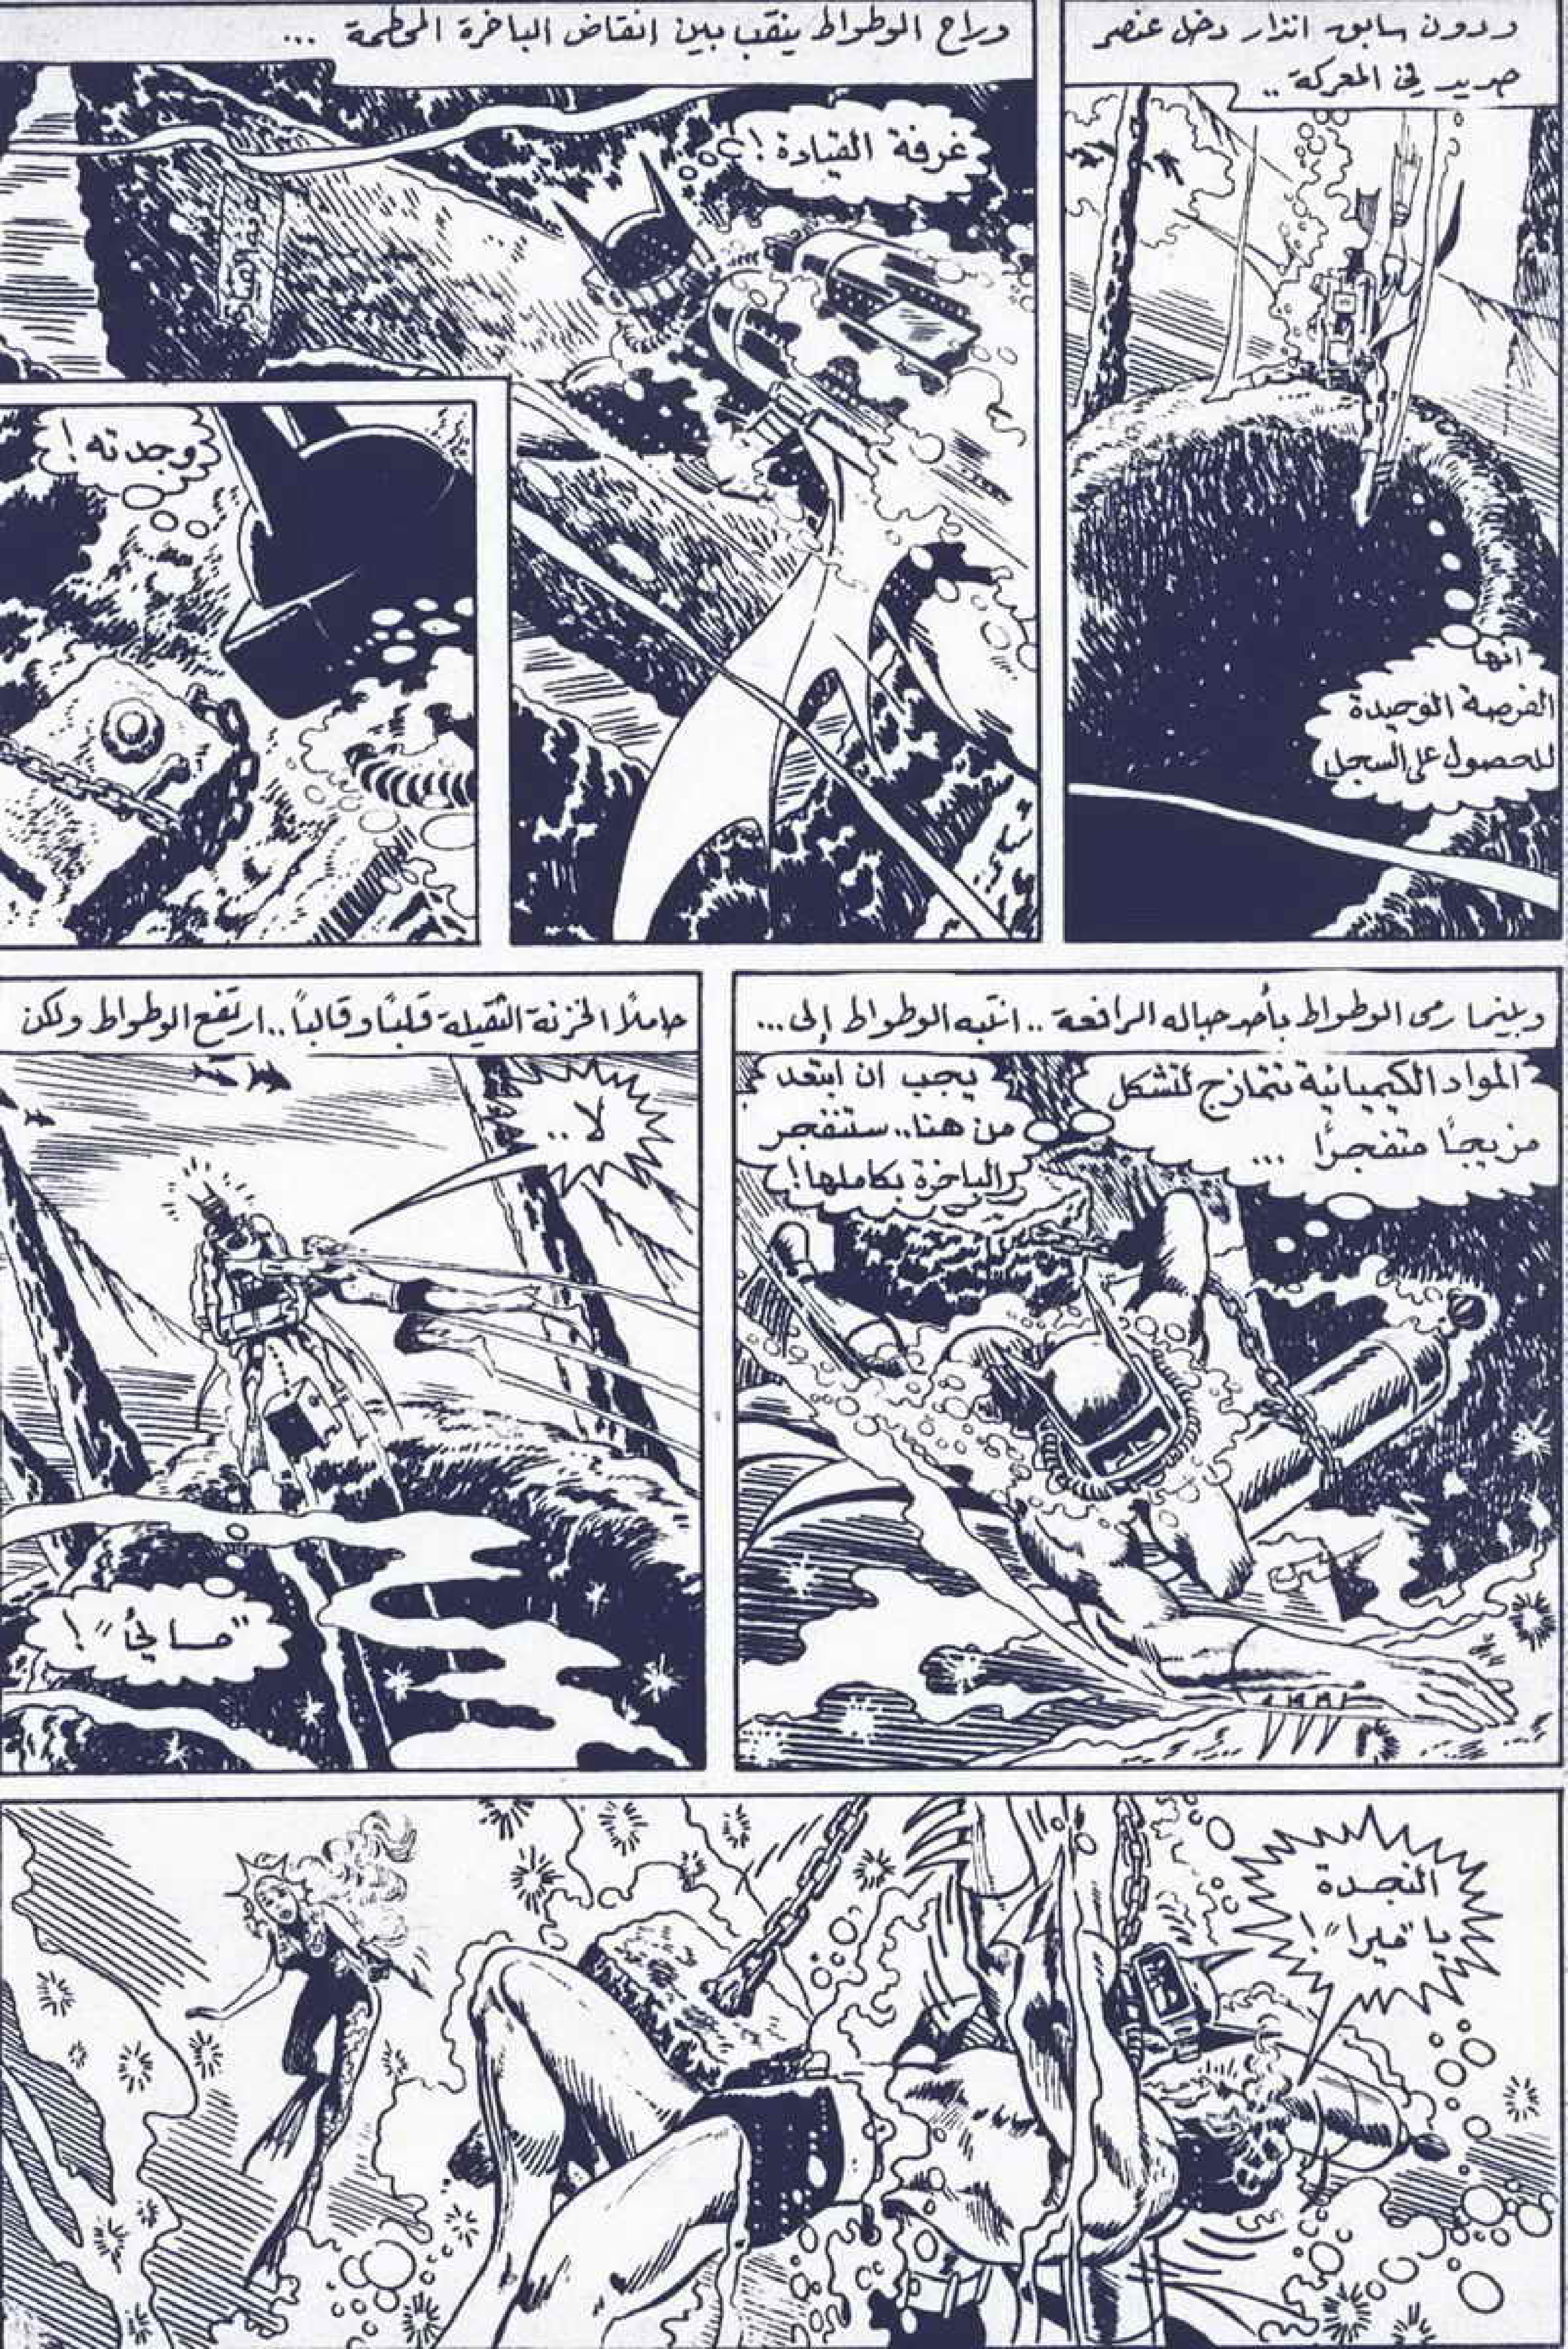 ودون سابق انذار دخل عنصر
جديد في المعركة ..
انها
الفرصة الوحيدة
للحصول على السجل
وراح الوطواط ينقب بين انقاض الباخرة المحطمة ...
غرفة القيادة!
وجدته!
وبينما رمى الوطواط بأحد حباله الرافعة .. انتبه الوطواط إلى...
المواد الكيميائية تتمازج لتشكل
مزيجًا متفجرًا ...
يجب ان ابتعد
من هنا.. ستنفجر
الباخرة بكاملها!
حاملًا الخزنة الثقيلة قلبًا وقالبًا.. ارتفع الوطواط ولكن
لا..
"مائي"!
النجدة
يا "ميرا"!